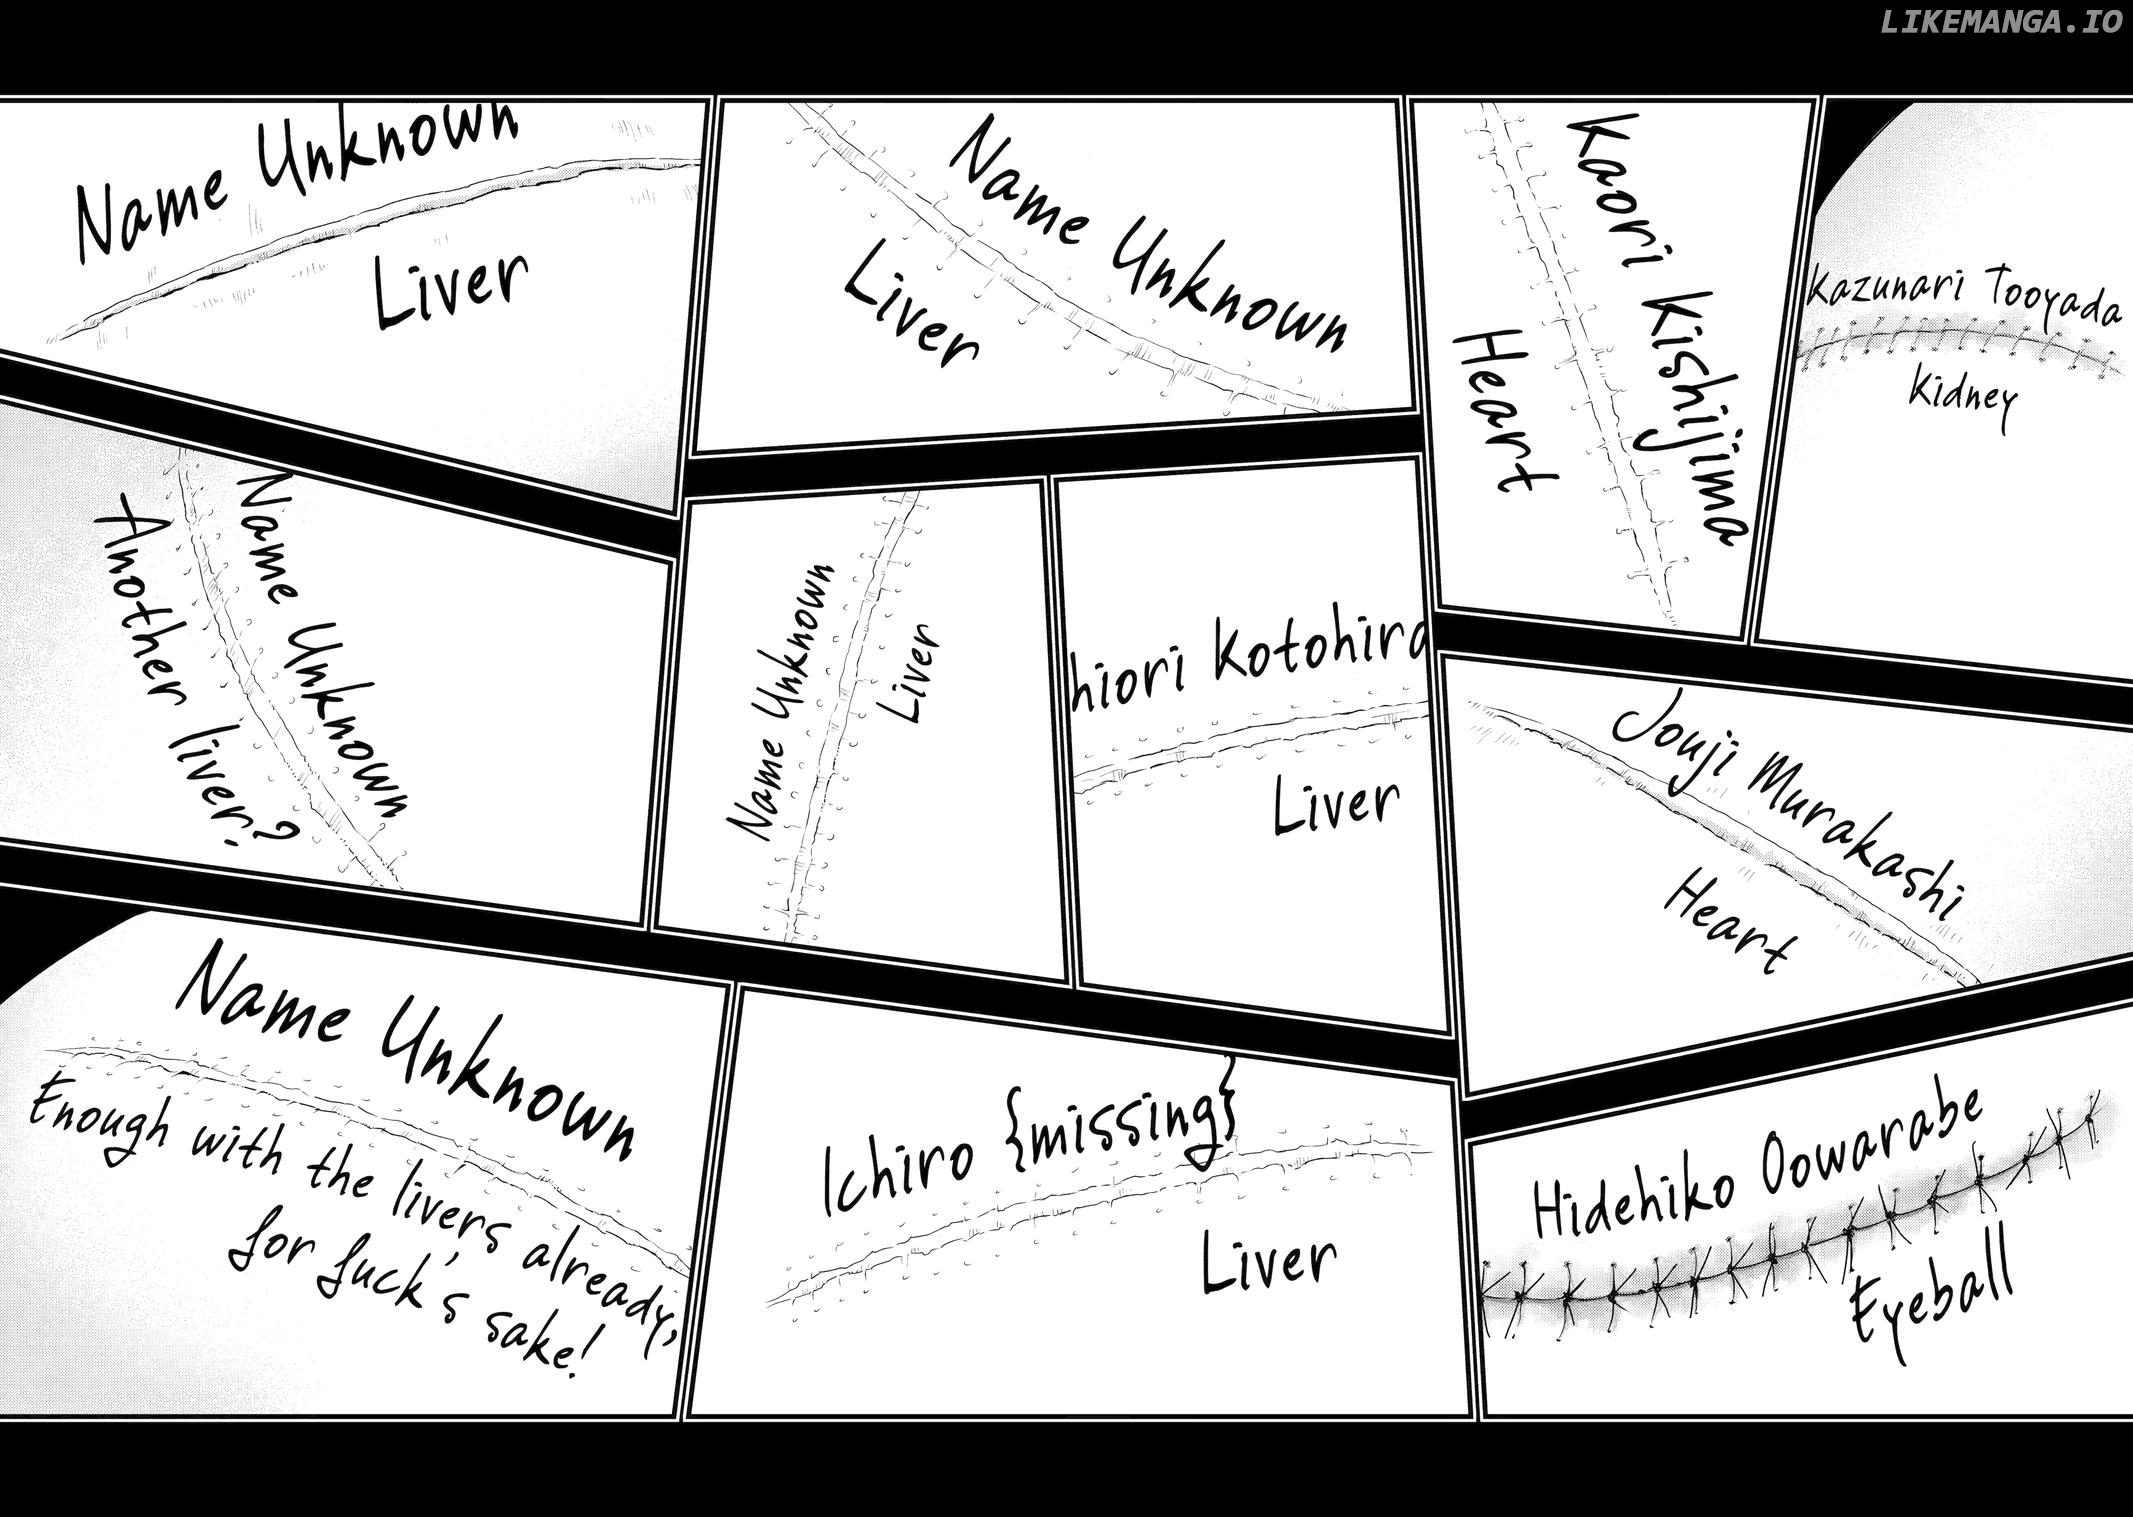 LIKEMANGA.IO
Kazunari Tooyada
Kidney
Kaori Kishijima
Heart
Name Unknown
Liver
Name Unknown
Liver
Jouji Murakashi
Heart
hiori Kotohira
Liver
Name Unknown
Liver
Name Unknown
Another liver?
Hidehiko Oowarabe
Eyeball
Ichiro {missing}
Liver
Name Unknown
Enough with the livers already,
for fuck's sake!